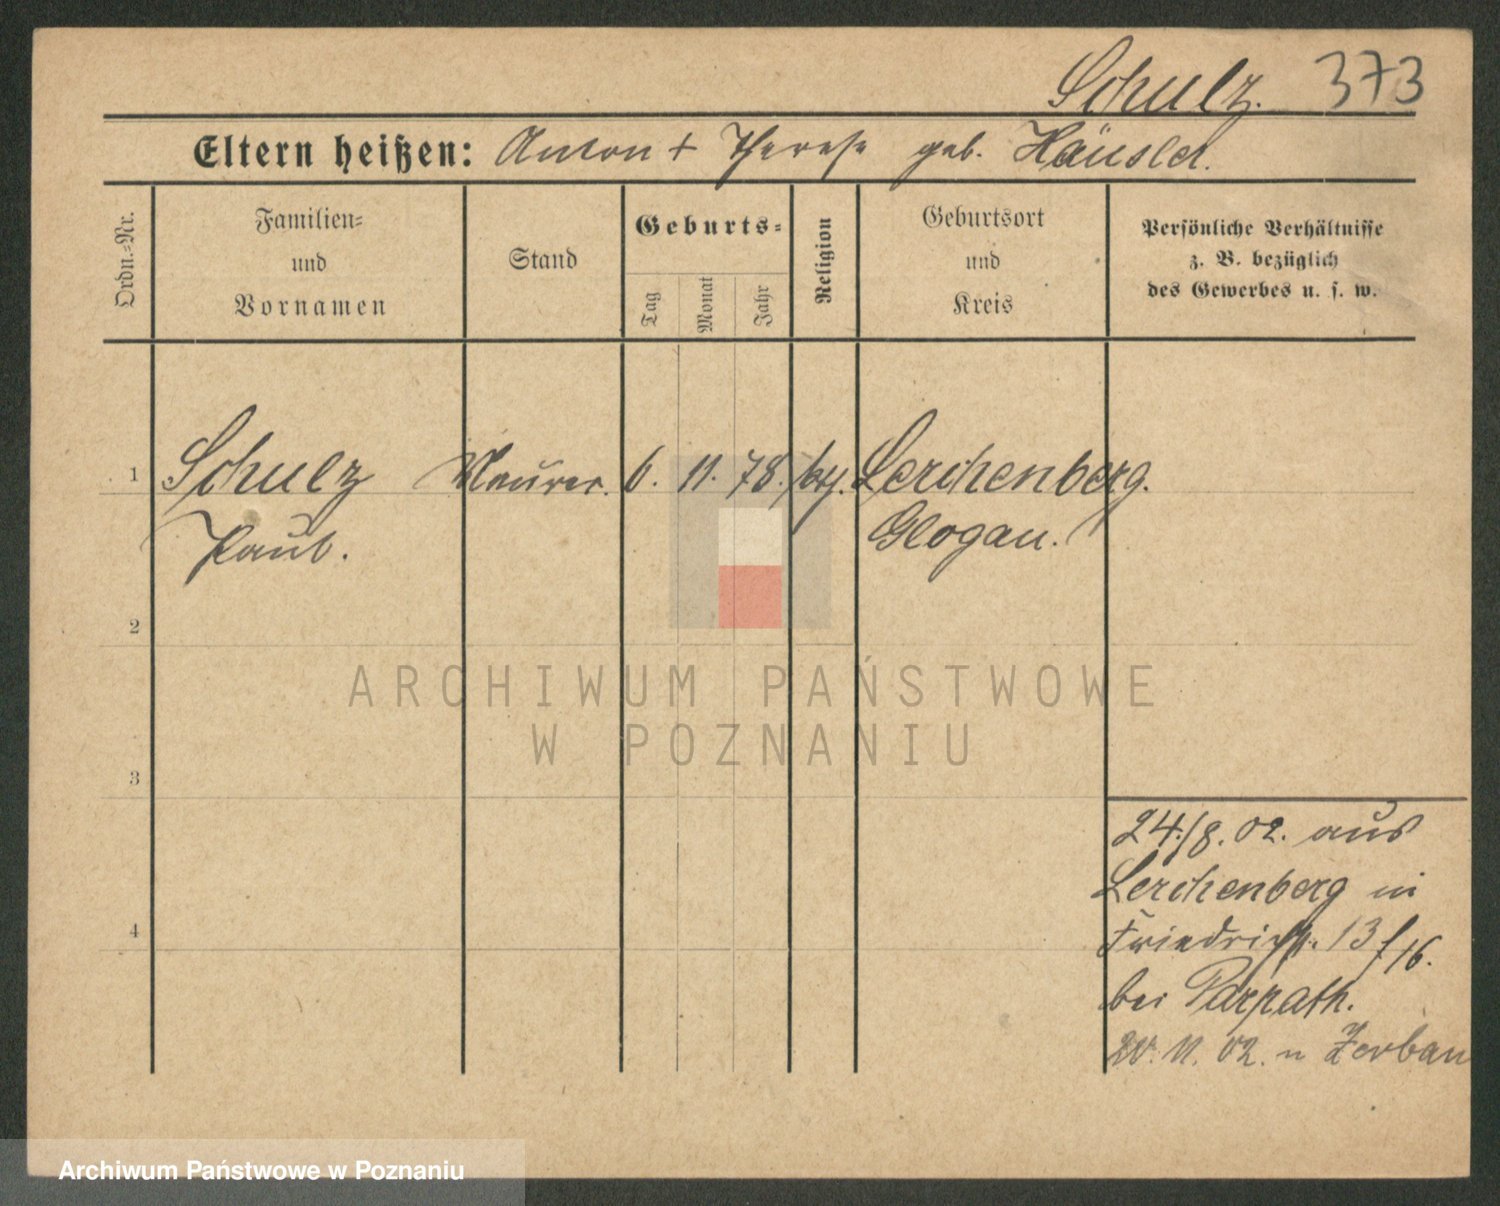 Schulz. 373
Eltern heißen: Anton + Therese geb. Häusler.
Ordn.=Nr.
Familien=
und
Vornamen
Stand
Geburts=
Tag
Monat
Jahr
Religion
Geburtsort
und
Kreis
Persönliche Verhältnisse
z. B. bezüglich
des Gewerbes u. s. w.
1 Schulz Maurer. 6. 11. 78. kth. Lerchenberg.
Paul. Glogau.
2
3
4
24./8. 02. aus
Lerchenberg in
Friedrichstr. 13 /16.
bei Parpath.
20. 11. 02. n Zerbau
ARCHIWUM PAŃSTWOWE
W POZNANIU
Archiwum Państwowe w Poznaniu